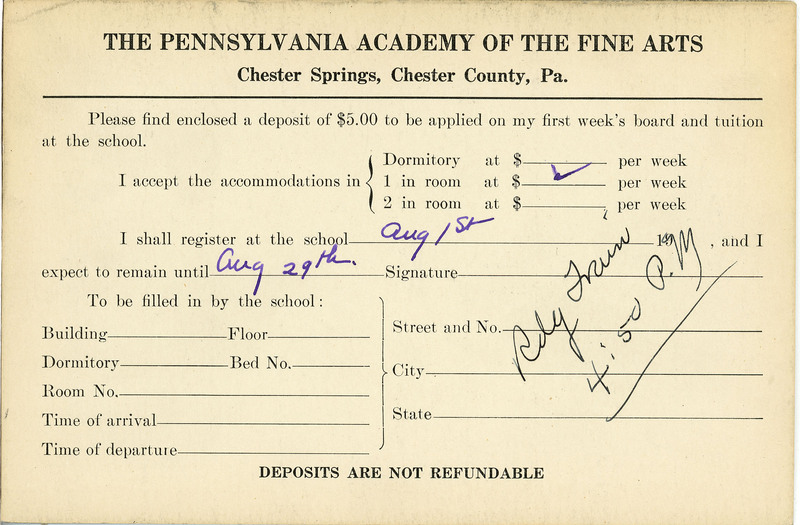 THE PENNSYLVANIA ACADEMY OF THE FINE ARTS
Chester Springs, Chester County, Pa.
Please find enclosed a deposit of $5.00 to be applied on my first week's board and tuition
at the school.
I accept the accommodations in
Dormitory at $ per week
1 in room at $ ✓ per week
2 in room at $ per week
I shall register at the school Aug 1st 19 , and I
expect to remain until Aug 29th. Signature
To be filled in by the school:
Building Floor
Dormitory Bed No.
Room No.
Time of arrival
Time of departure
Street and No.
City
State
Rdg Train
4:50 P.M
DEPOSITS ARE NOT REFUNDABLE